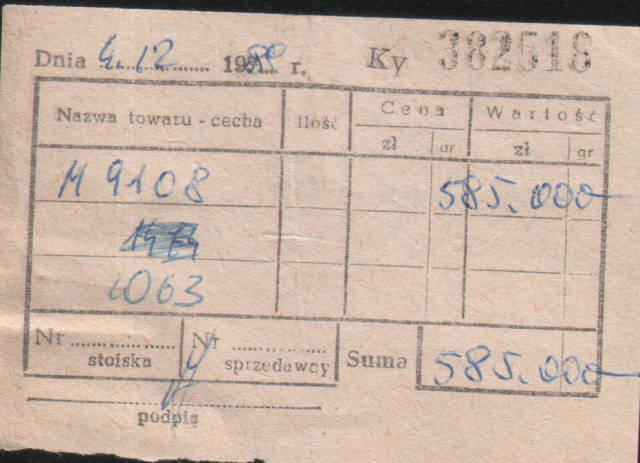 Dnia 4.12 19 r. Ky 382518
Nazwa towaru - cecha Ilość Cena Wartość
zł gr zł gr
M 9108 585.000
1063
Nr Nr
stoiska sprzedawcy Suma 585.000
podpis